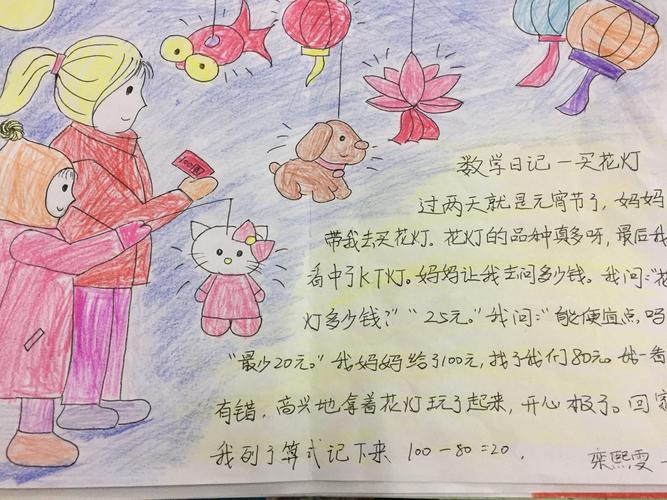 100元
数学日记—买花灯
过两天就是元宵节了,妈妈
带我去买花灯。花灯的品种真多呀,最后我
看中了KT灯。妈妈让我去问多少钱。我问:“花
灯多少钱?”“25元。”我问:“能便宜点吗
“最少20元。”我妈妈给了100元,找了我们80元。我一看
有错,高兴地拿着花灯玩了起来,开心极了。回家
我列了算式记下来 100-80=20.
栾熙雯